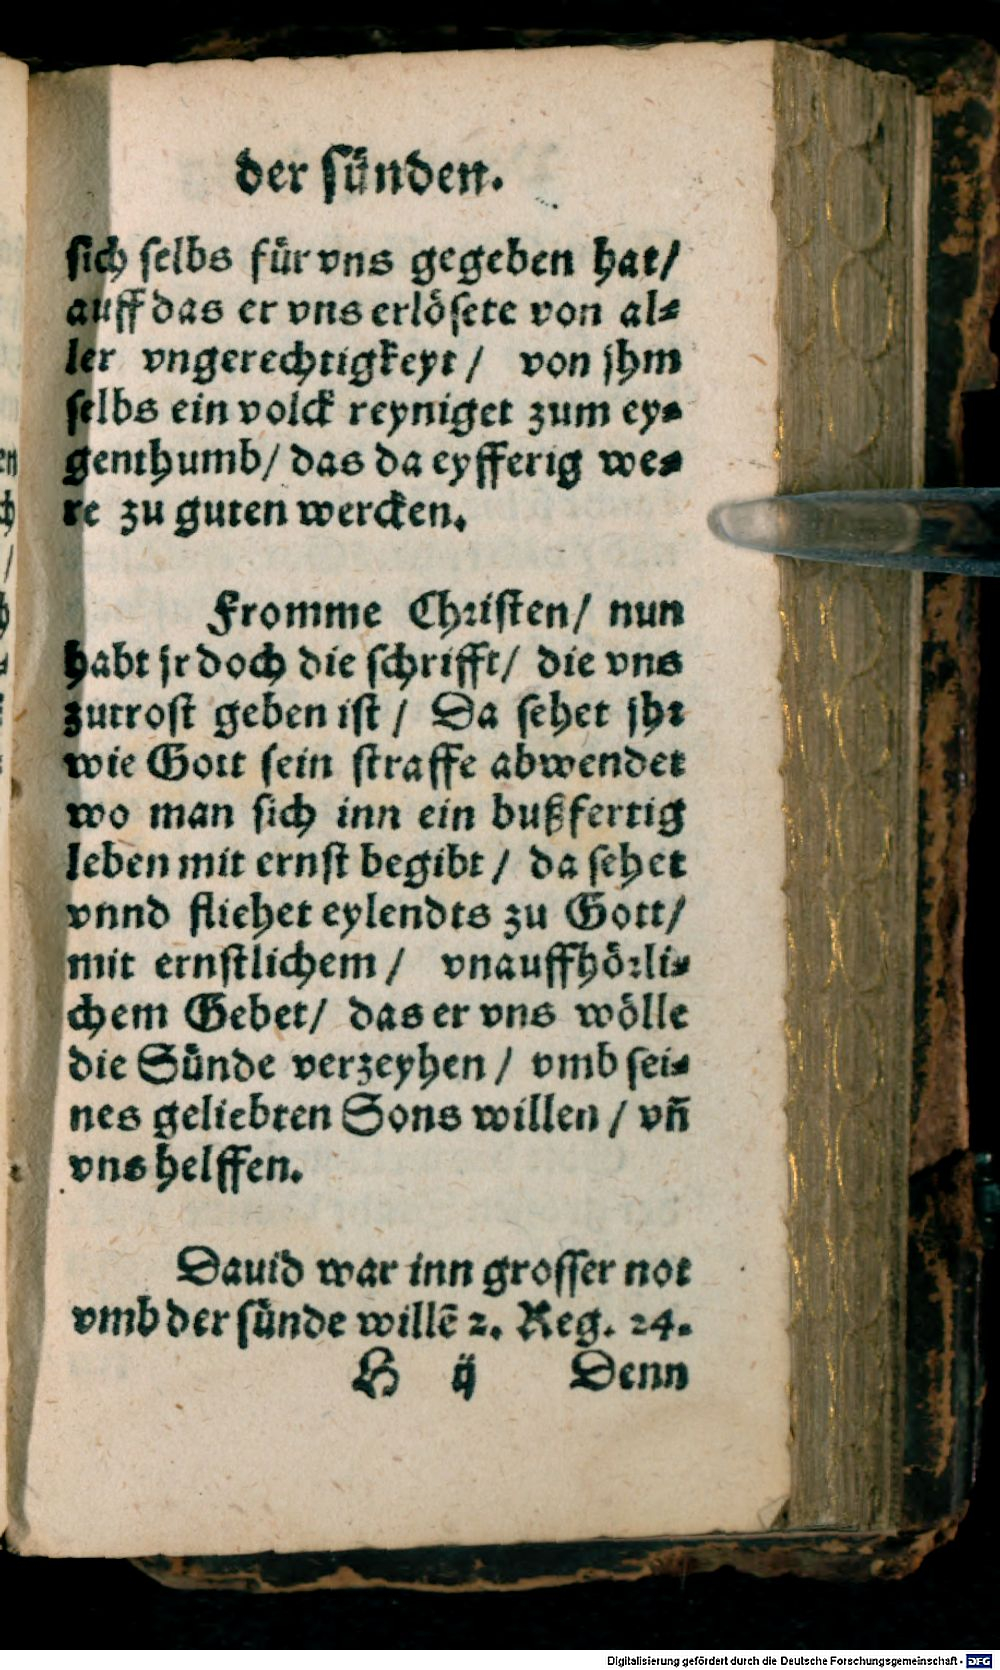 der ſünden.
ſich ſelbs für vns gegeben hat/
auff das er vns erlöſete von al⸗
ler vngerechtigkeyt / von jhm
ſelbs ein volck reyniget zum ey⸗
genthumb/ das da eyfferig we⸗
re zu guten wercken.
Fromme Chꝛiſten/ nun
habt jr doch die ſchrifft/ die vns
zutroſt geben iſt / Da ſehet jhꝛ
wie Gott ſein ſtraffe abwendet
wo man ſich inn ein bußfertig
leben mit ernſt begibt / da ſehet
vnnd fliehet eylendts zu Gott/
mit ernſtlichem / vnauffhöꝛli⸗
chem Gebet/ das er vns wölle
die Sünde verzeyhen / vmb ſei⸗
nes geliebten Sons willen / vñ
vns helffen.
Dauid war inn groſſer not
vmb der ſünde willẽ 2. Reg. 24.
H ij Denn
Digitalisierung gefördert durch die Deutsche Forschungsgemeinschaft - DFG